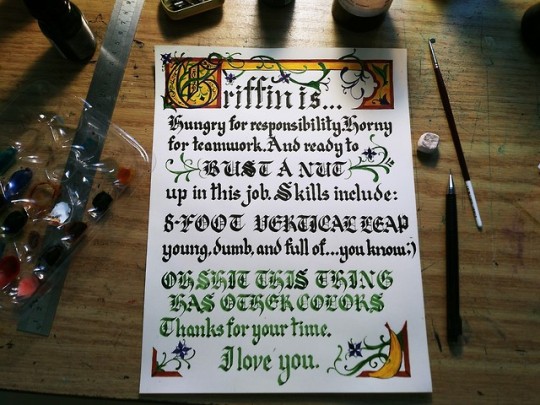 Griffin is...
Hungry for responsibility. Horny
for teamwork. And ready to
BUST A NUT
up in this job. Skills include:
8-FOOT VERTICAL LEAP
young, dumb, and full of...you know ;)
OH SHIT THIS THING
HAS OTHER COLORS
Thanks for your time.
I love you.